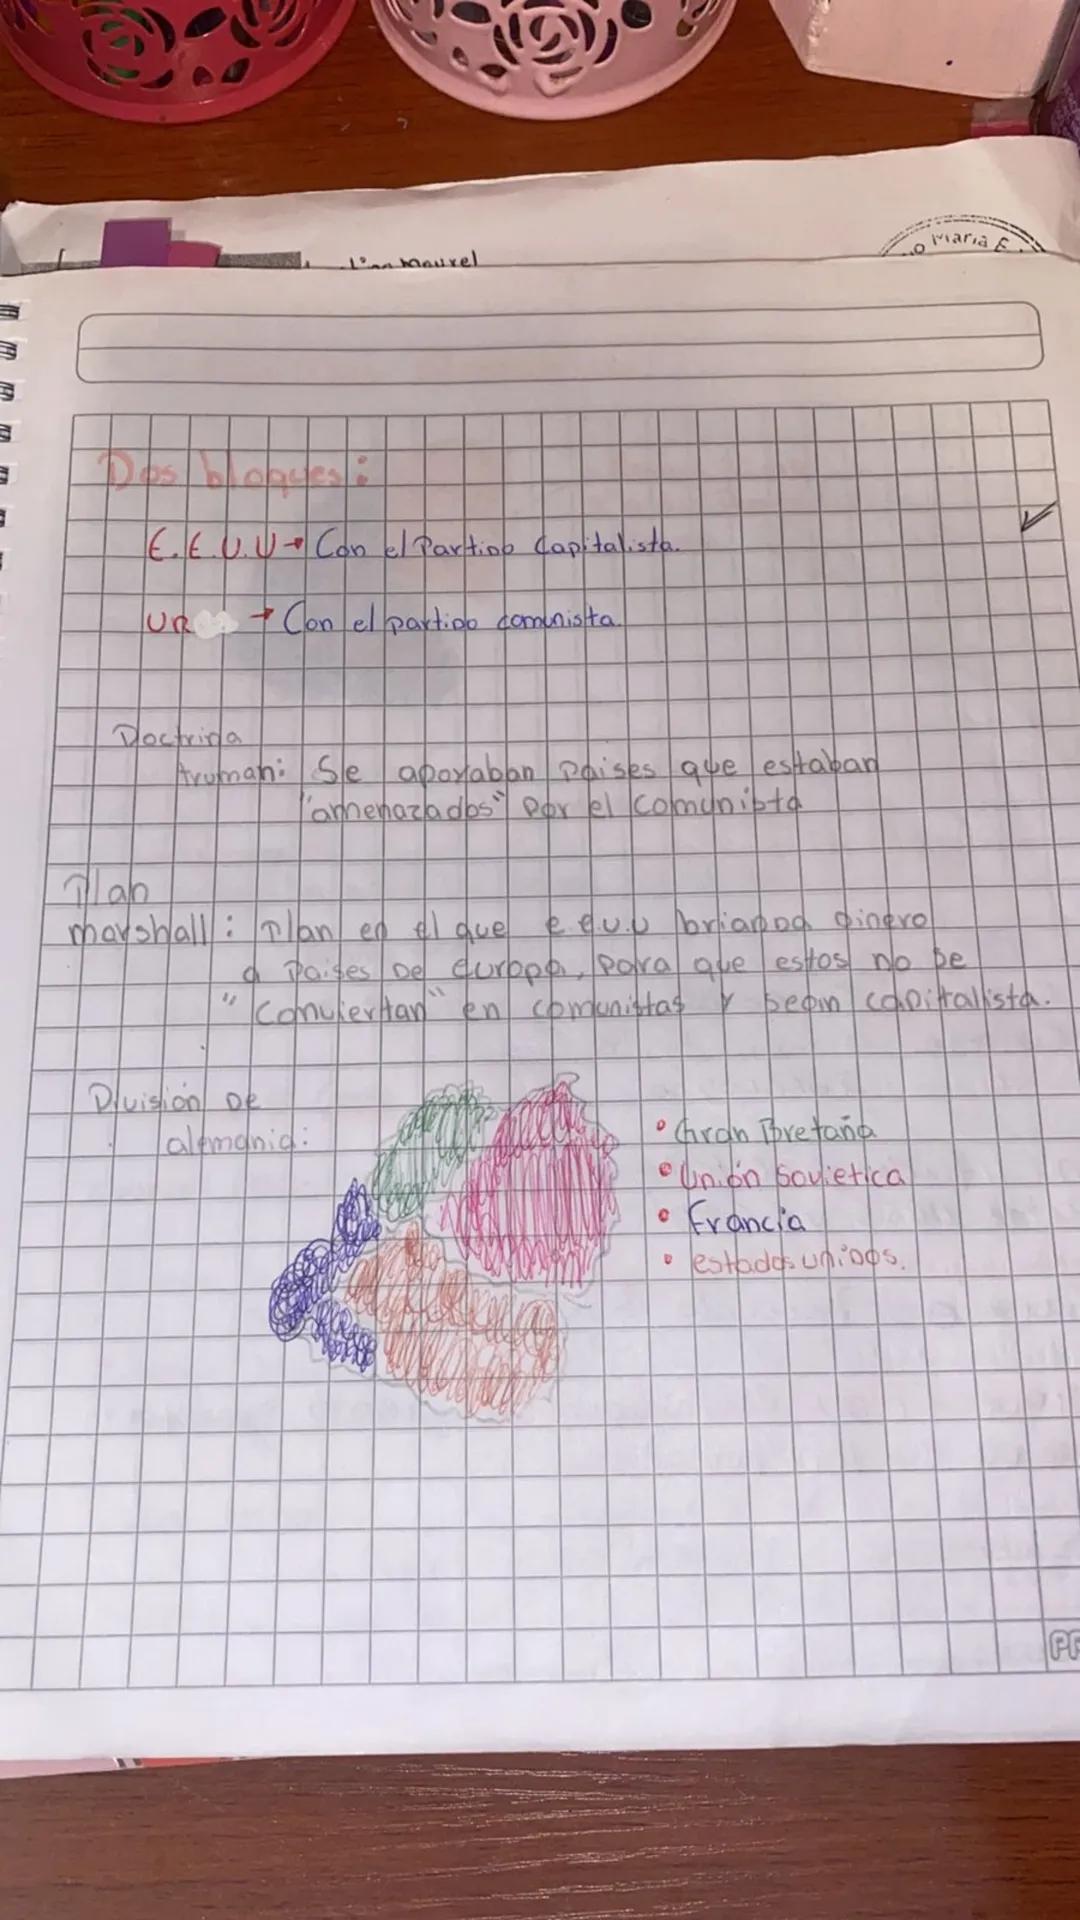 Maurel
Maria E
Dos bloques:
E.E.U.U → Con el Partido Capitalista.
UR → Con el partido comunista.
Doctrina
truman: Se apoyaban Paises que estaban
"amenazados" por el comunista
Plan
marshall: Plan en el que e.e.u.u brianda dinero
a Paises de europa, para que estos no se
"conviertan" en comunistas y sean capitalista.
División de
alemania:
• Gran Bretaña
• Unión Sovietica
• Francia
• estados unidos.